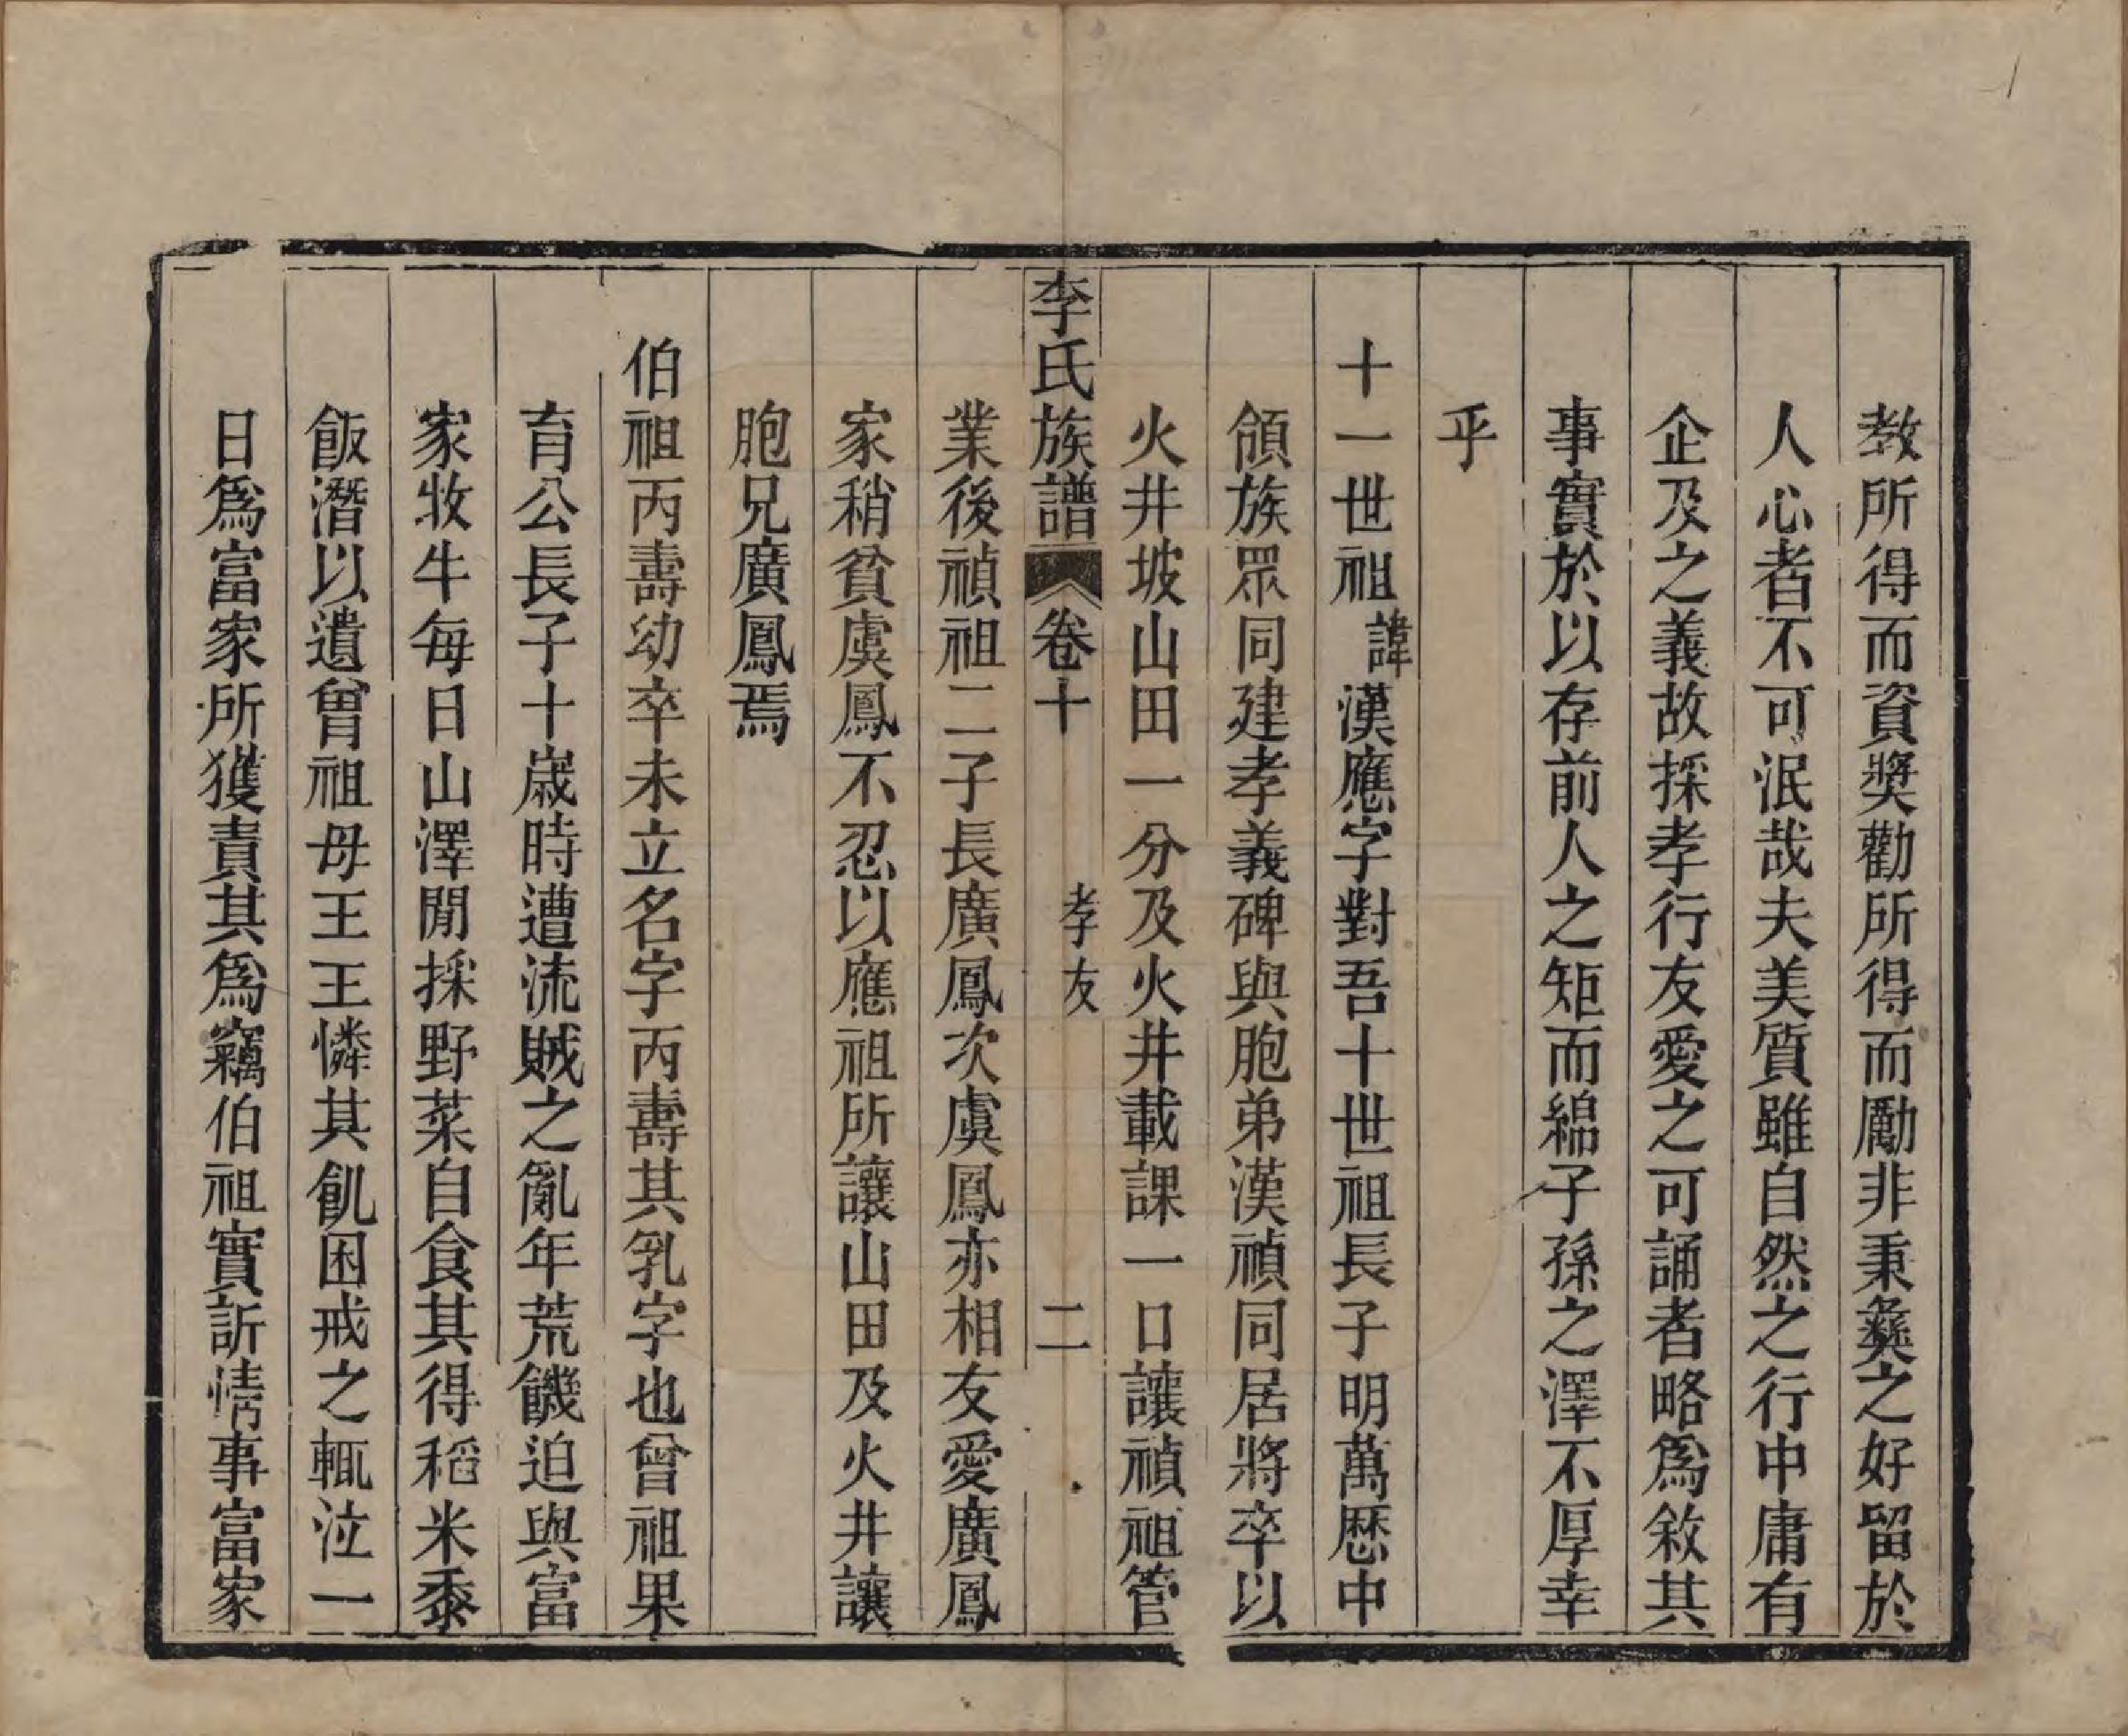 教所得而資奬勸所得而勵非秉彝之好留於
人心者不可泯哉夫美質雖自然之行中庸有
企及之義故採孝行友愛之可誦者略爲敘其
事實於以存前人之矩而綿子孫之澤不厚幸
乎
十一世祖諱漢應字對吾十世祖長子明萬厯中
領族眾同建孝義碑與胞弟漢禎同居將卒以
火井坡山田一分及火井載課一口讓禎祖管
李氏族譜 卷十 孝友 二
業後禎祖二子長廣鳳次虞鳳亦相友愛廣鳳
家稍貧虞鳳不忍以應祖所讓山田及火井讓
胞兄廣鳳焉
伯祖丙壽幼卒未立名字丙壽其乳字也曾祖果
育公長子十歲時遭流賊之亂年荒饑迫與富
家牧牛每日山澤閒採野菜自食其得稻米黍
飯潛以遺曾祖母王王憐其飢困戒之輒泣一
日爲富家所獲責其爲竊伯祖實訴情事富家